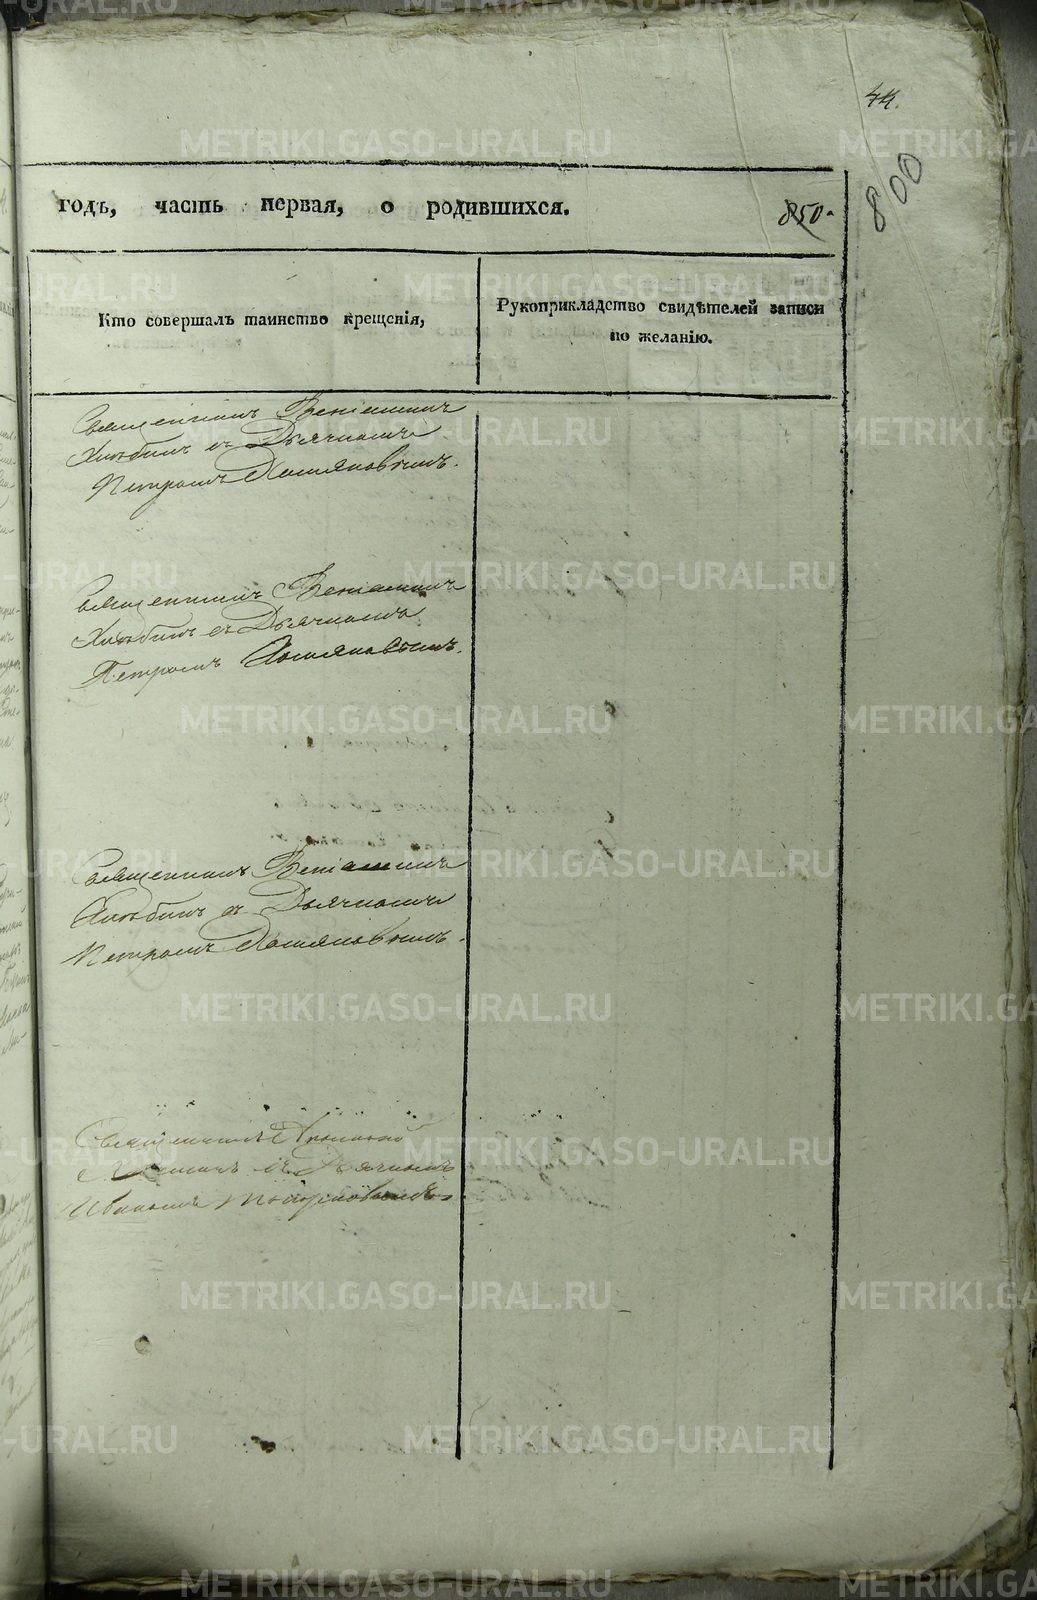 44.
800
годъ, часть первая, о родившихся.
850.
Кто совершалъ таинство крещенія,
Рукоприкладство свидѣтелей записи
по желанію.
Священникъ Веніаминъ
Хлѣбинъ съ Дьячкомъ
Петромъ
Священникъ Веніаминъ
Хлѣбинъ съ Дьячкомъ
Петромъ
Священникъ Веніаминъ
Хлѣбинъ съ Дьячкомъ
Петромъ
Священникъ
съ Дьячкомъ
Иваномъ
METRIKI.GASO-URAL.RU